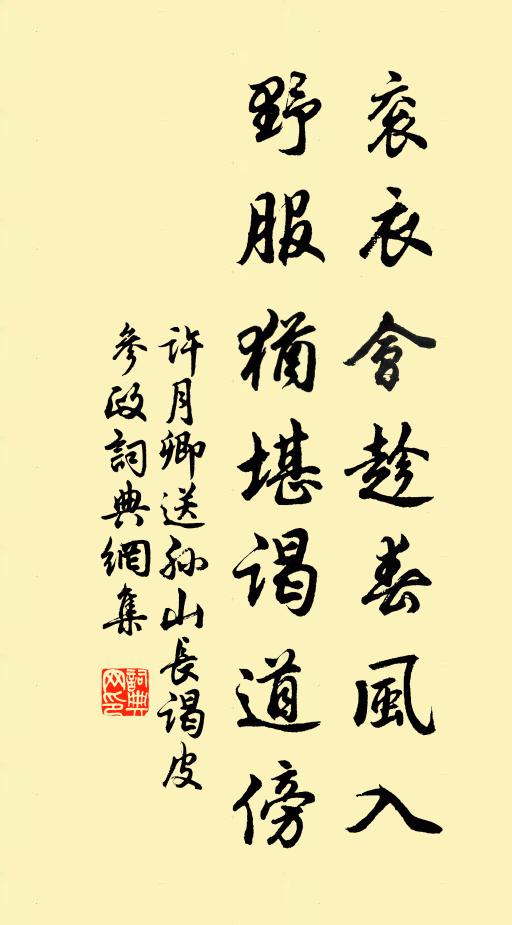 衮衣會趁春風入
野服猶堪謁道傍
許月卿送孫山長謁皮
參政詞典網集
詞典网印